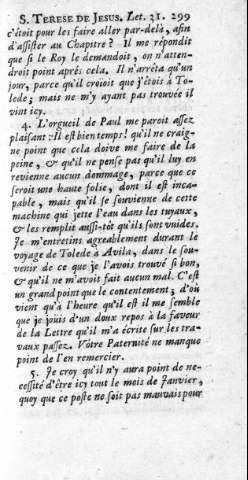 S. TERESE DE JESUS. Let. 31. 299
c'étoit pour les faire aller par-delà, afin
d'assister au Chapitre? Il me répondit
que si le Roy le demandoit, on n'atten-
droit point aprés cela. Il n'arrêta qu'un
jour, parce qu'il croioit que j'étois à To-
lede; mais ne m'y ayant pas trouvée il
vint icy.
4. L'orgueil de Paul me paroit assez
plaisant: Il est bien temps! qu'il ne craig-
ne point que cela doive me faire de la
peine, & qu'il ne pense pas qu'il luy en
revienne aucun dommage, parce que ce
seroit une haute folie, dont il est inca-
pable, mais qu'il se souvienne de cette
machine qui jette l'eau dans les tuyaux,
& les remplit aussi-tôt qu'ils sont vuides.
Je m'entretins agreablement durant le
voyage de Tolede à Avila, dans le sou-
venir de ce que je l'avois trouvé si bon,
& qu'il ne m'avoit fait aucun mal. C'est
un grand point que le contentement; d'où
vient qu'à l'heure qu'il est il me semble
que je joüis d'un doux repos à la faveur
de la Lettre qu'il m'a écrite sur les tra-
vaux passez. Vôtre Paternité ne manque
point de l'en remercier.
5. Je croy qu'il n'y aura point de ne-
cessité d'être icy tout le mois de Janvier,
quoy que ce poste ne soit pas mauvais pour